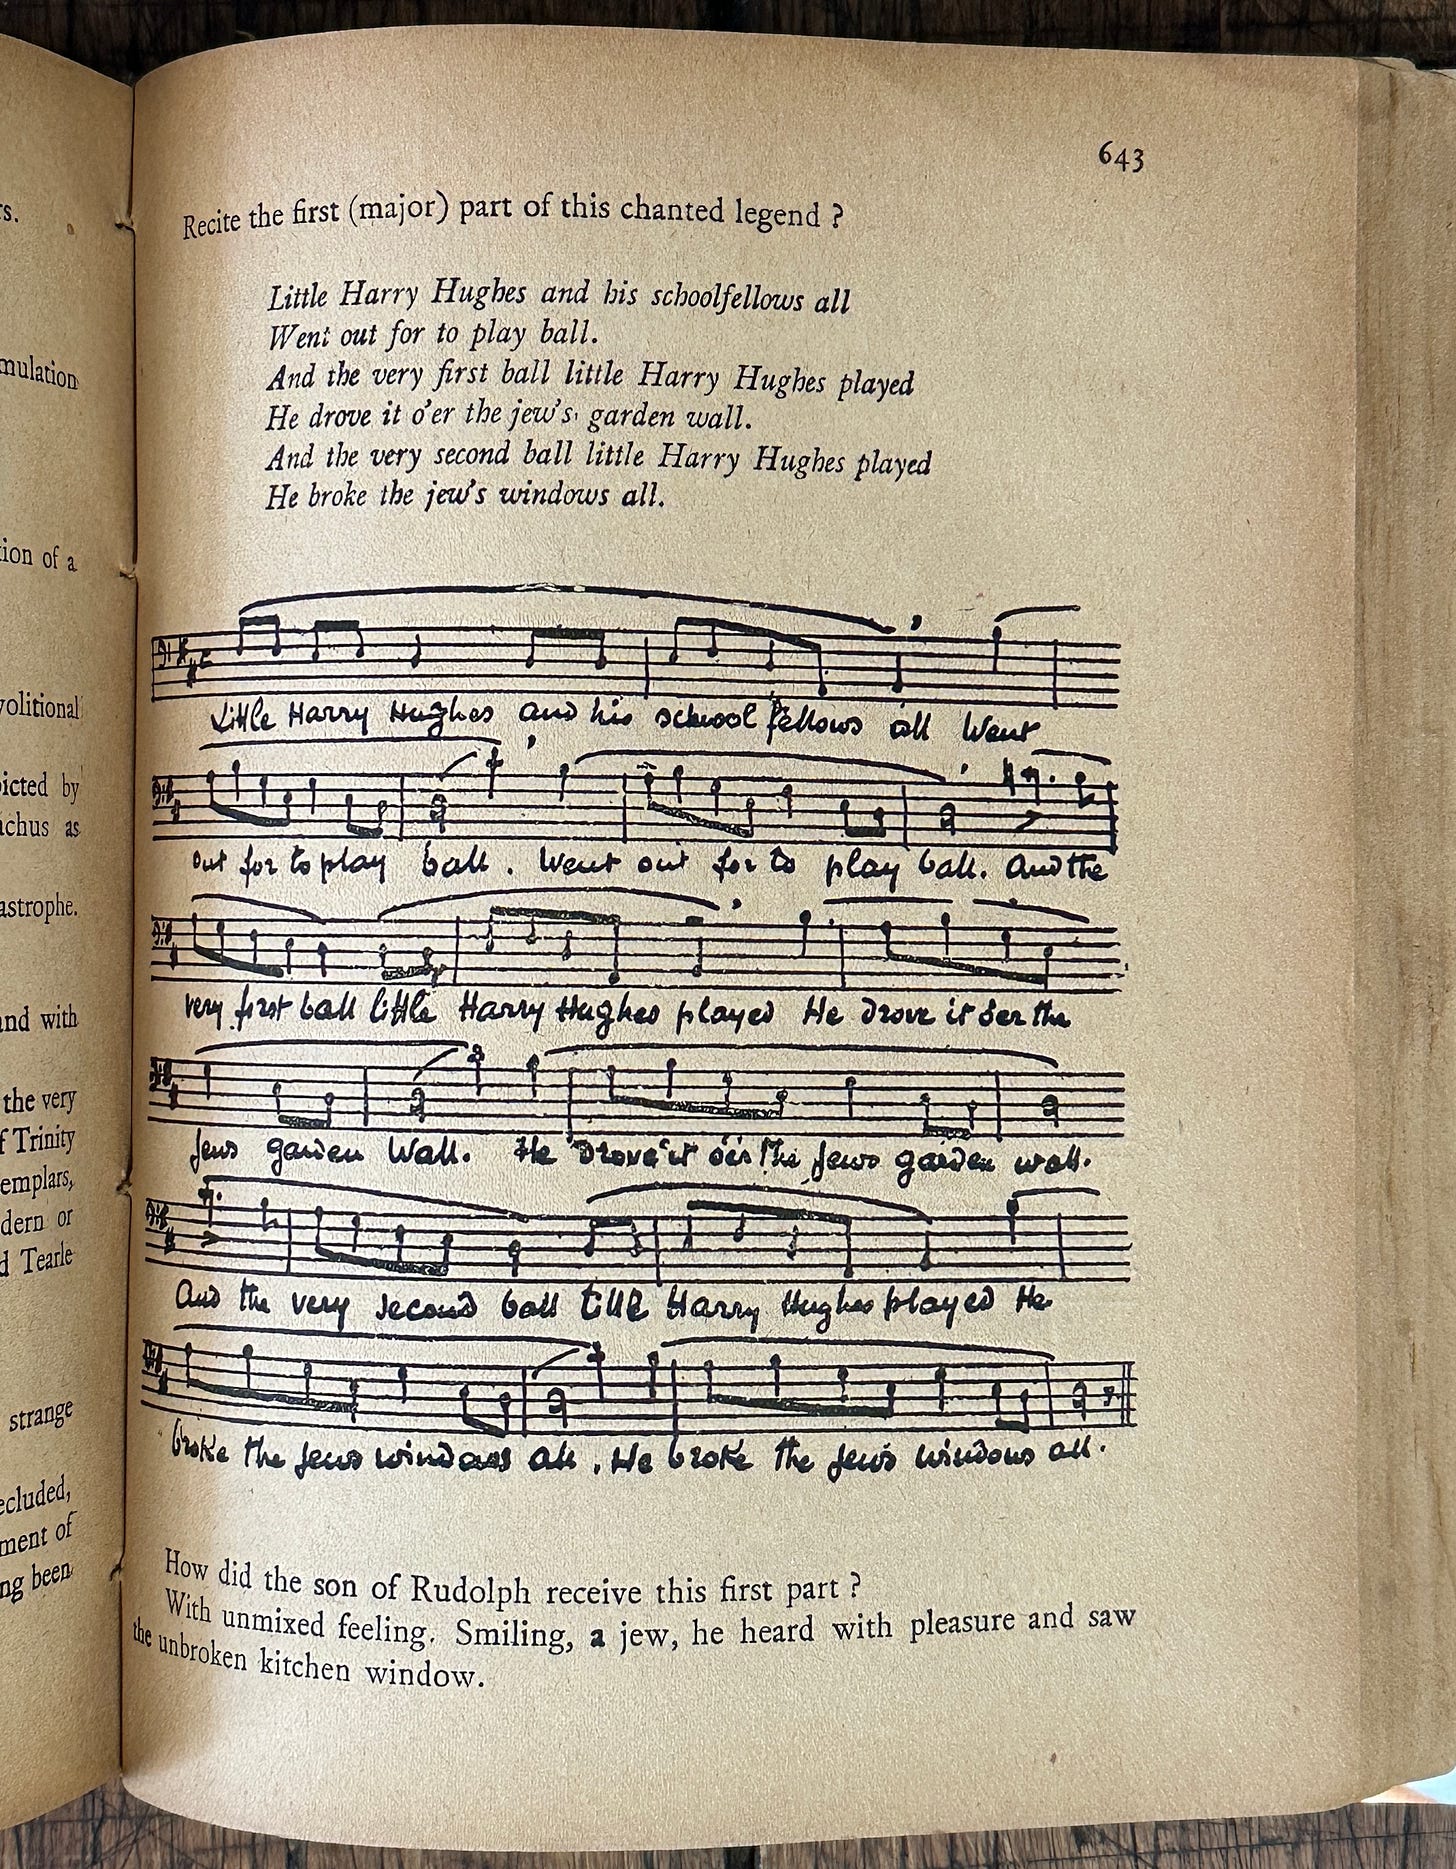 rs.
mulation
tion of a
volitional
icted by
chus as
astrophe.
and with
the very
f Trinity
emplars,
dern or
d Tearle
strange
ecluded,
ment of
ng been
643
Recite the first (major) part of this chanted legend ?
Little Harry Hughes and his schoolfellows all
Went out for to play ball.
And the very first ball little Harry Hughes played
He drove it o'er the jew's garden wall.
And the very second ball little Harry Hughes played
He broke the jew's windows all.
Little Harry Hughes and his school fellows all Went
out for to play ball. Went out for to play ball. And the
very first ball little Harry Hughes played He drove it o'er the
jews garden wall. He drove it o'er the jews garden wall.
And the very second ball little Harry Hughes played He
broke the jews windows all. He broke the jew's windows all.
How did the son of Rudolph receive this first part ?
With unmixed feeling. Smiling, a jew, he heard with pleasure and saw
the unbroken kitchen window.